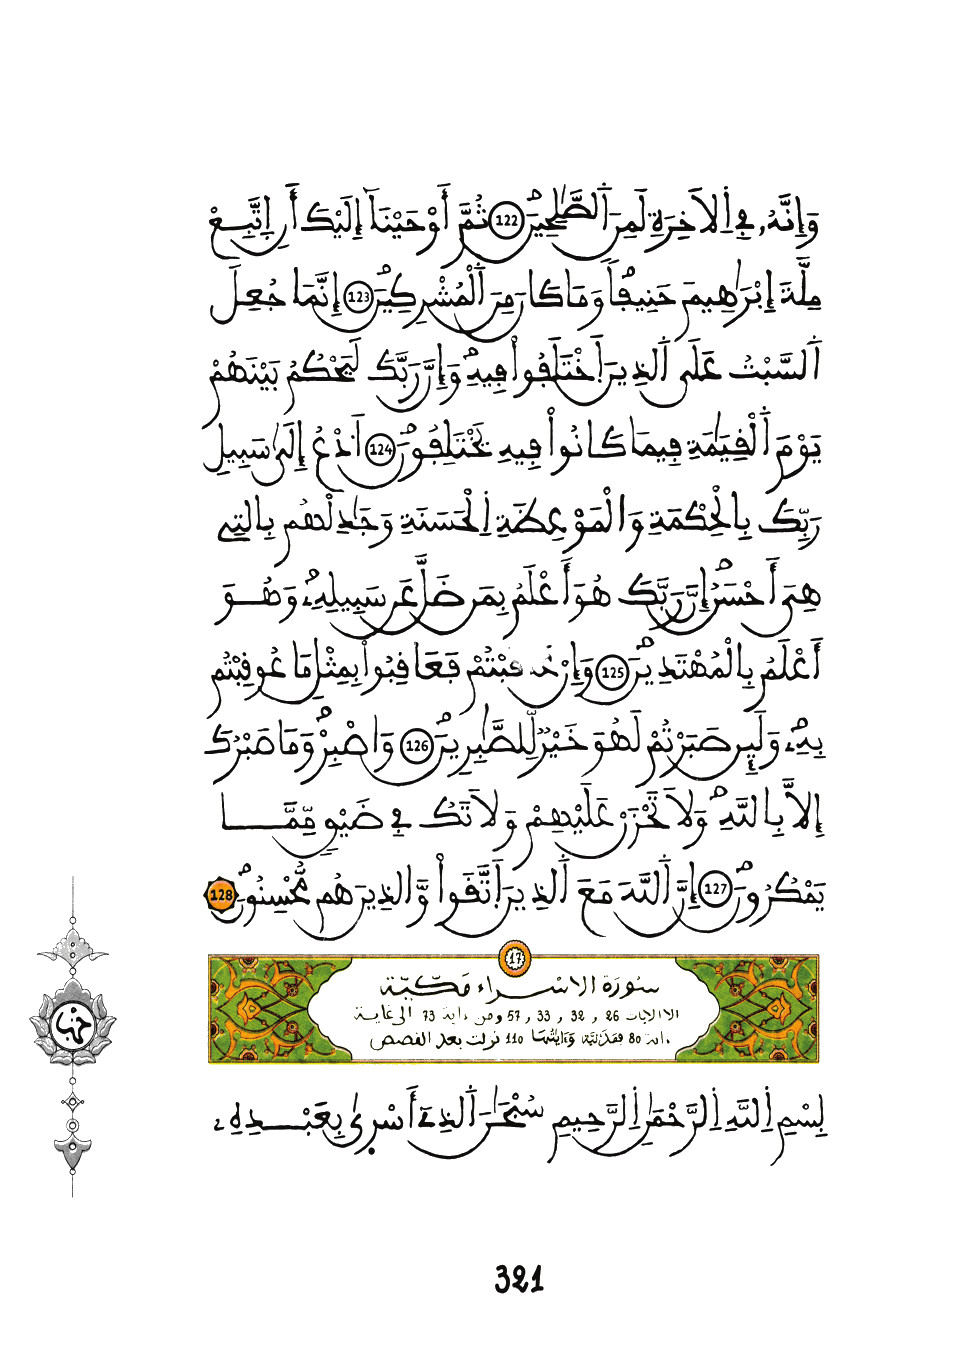 وَإِنَّهُۥ فِي اِ۬لَاخِرَةِ لَمِنَ اَ۬لصَّٰلِحِينَۖ 122 ثُمَّ أَوْحَيْنَآ إِلَيْكَ أَنِ اِ۪تَّبِعْ
مِلَّةَ إِبْرَٰهِيمَ حَنِيفاٗۖ وَمَا كَانَ مِنَ اَ۬لْمُشْرِكِينَۖ 123 إِنَّمَا جُعِلَ
اَ۬لسَّبْتُ عَلَي اَ۬لذِينَ اَ۪خْتَلَفُواْ فِيهِۖ وَإِنَّ رَبَّكَ لَيَحْكُمُ بَيْنَهُمْ
يَوْمَ اَ۬لْقِيَٰمَةِ فِيمَا كَانُواْ فِيهِ يَخْتَلِفُونَۖ 124 اَ۟دْعُ إِلَيٰ سَبِيلِ
رَبِّكَ بِالْحِكْمَةِ وَالْمَوْعِظَةِ اِ۬لْحَسَنَةِ وَجَٰدِلْهُم بِالتِے
هِيَ أَحْسَنُۖ إِنَّ رَبَّكَ هُوَ أَعْلَمُ بِمَن ضَلَّ عَن سَبِيلِهِۦۖ وَهُوَ
أَعْلَمُ بِالْمُهْتَدِينَۖ 125 وَإِنْ عَاقَبْتُمْ فَعَاقِبُواْ بِمِثْلِ مَا عُوقِبْتُم
بِهِۦۖ وَلَئِن صَبَرْتُمْ لَهُوَ خَيْرٞ لِّلصَّٰبِرِينَۖ 126 وَاصْبِرْۖ وَمَا صَبْرُكَ
إِلَّا بِاللَّهِۖ وَلَا تَحْزَنْ عَلَيْهِمْ وَلَا تَكُ فِي ضَيْقٖ مِّمَّا
يَمْكُرُونَۖ 127 إِنَّ اَ۬للَّهَ مَعَ اَ۬لذِينَ اَ۪تَّقَواْ وَّالذِينَ هُم مُّحْسِنُونَۖ 128
17
سُورَةُ الاِسْرَاء مَكِّيَّة
الا الايات 26 و 32 و 33 و 57 ومن ءاية 73 الى غاية
ءاية 80 فمدنية وءاياتها 110 نزلت بعد القصص
بِسْمِ اِ۬للَّهِ اِ۬لرَّحْمَٰنِ اِ۬لرَّحِيمِ سُبْحَٰنَ اَ۬لذِےٓ أَسْر۪يٰ بِعَبْدِهِۦ
حزب
321